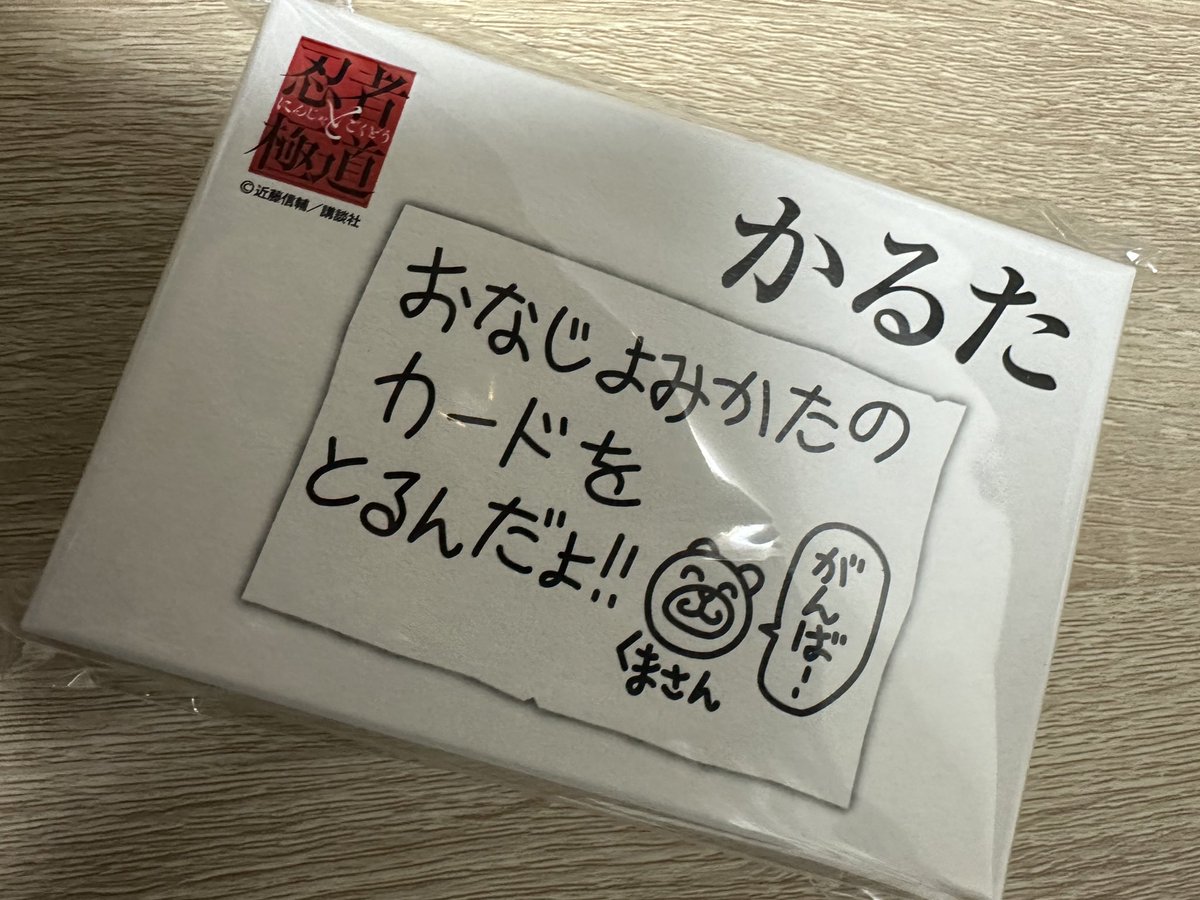 忍者
にんじゃとごくどう
極道
©近藤信輔／講談社
かるた
おなじよみかたの
カードを
とるんだよ!!
くまさん
がんばー